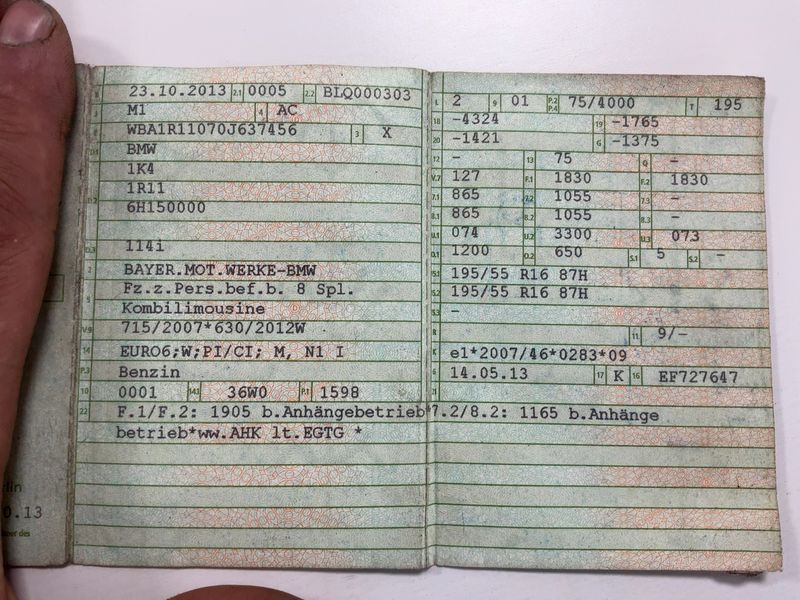 23.10.2013 2.1 0005 2.2 BLQ000303
M1 4 AC
WBA1R11070J637456 3 X
BMW
1K4
1R11
D.2 6H150000
D.3 114i
2 BAYER.MOT.WERKE-BMW
Fz.z.Pers.bef.b. 8 Spl.
5 Kombilimousine
V.9 715/2007*630/2012W
14 EURO6;W;PI/CI; M, N1 I
P.3 Benzin
10 0001 14.1 36W0 P.1 1598
22 F.1/F.2: 1905 b.Anhängebetrieb*7.2/8.2: 1165 b.Anhänge
betrieb*ww.AHK lt.EGTG *
L 2 9 01 P.2 P.4 75/4000 T 195
18 -4324 19 -1765
20 -1421 G -1375
12 - 13 75 Q -
V.7 127 F.1 1830 F.2 1830
7.1 865 7.2 1055 7.3 -
8.1 865 8.2 1055 8.3 -
U.1 074 U.2 3300 U.3 073
O.1 1200 O.2 650 S.1 5 S.2 -
15.1 195/55 R16 87H
15.2 195/55 R16 87H
15.3 -
R 11 9/-
K e1*2007/46*0283*09
6 14.05.13 17 K 16 EF727647